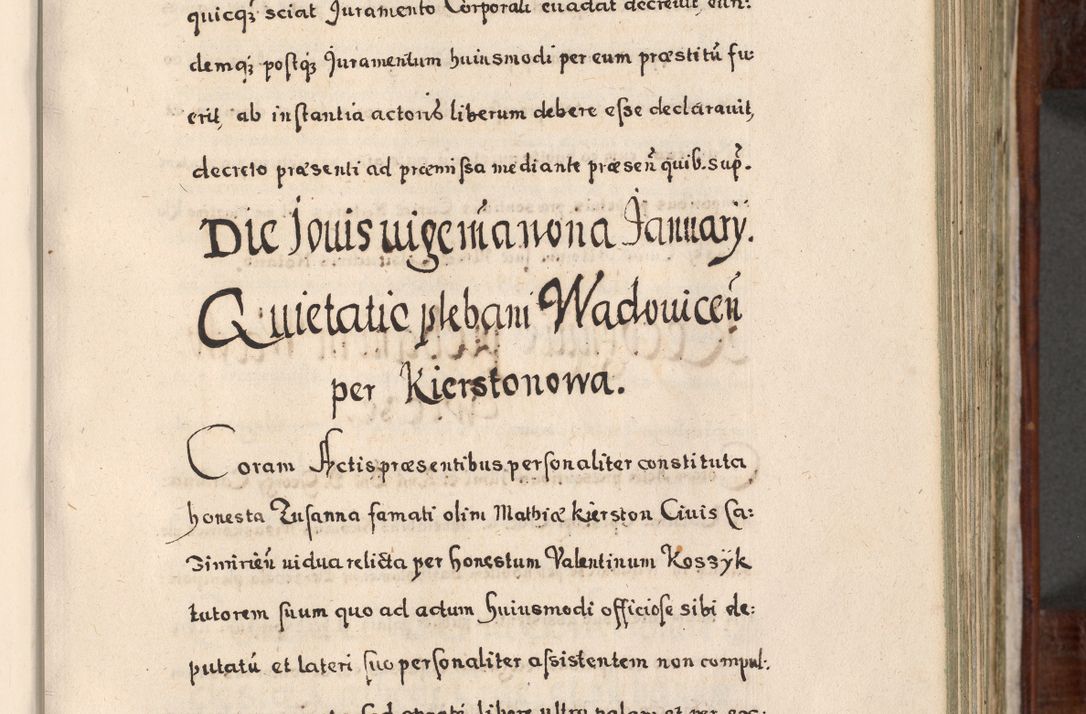 quicqȝ sciat Juramento Corporali euadat decreuit, eun:
demqȝ postqȝ Juramentum huiusmodi per eum præstitū fu:
erit, ab instantia actoris liberum debere esse declarauit,
decreto præsenti ad præmissa mediante præseñ quib. sup̃.
Die Jouis uigesimanona Januarÿ.
Quietatio plebani Wadouiceñ
per Kierstonowa.
Coram Actis præsentibus personaliter constituta
honesta Zusanna famati olim Mathiæ Kierston Ciuis Ca:
zimirieñ uidua relicta per honestum Valentinum Koszÿk
tutorem suum quo ad actum huiusmodi officiose sibi de:
putatū et lateri suo personaliter assistentem non compul:
sed libere ultro palam et per